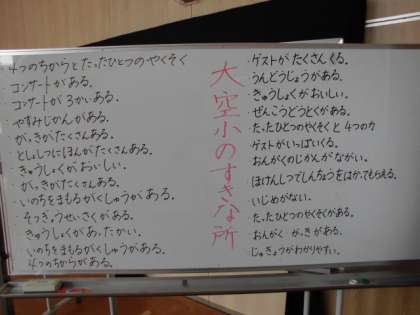 4つのちからとたったひとつのやくそく
コンサートがある。
コンサートが3かいある。
やすみじかんがある。
がっきがたくさんある。
としょしつにほんがたくさんある。
きゅうしょくがおいしい。
がっきがたくさんある。
いのちをまもるがくしゅうがある。
そつぎょうせいさくがある。
きゅうしょくがあったかい。
いのちをまもるがくしゅうがある。
4つのちからがある。
大空小のすきな所
・ゲストがたくさんくる。
・うんどうじょうがある。
・きゅうしょくがおいしい。
・ぜんこうどうとくがある。
・たったひとつのやくそくと4つの力
・ゲストがいっぱいくる。
・おんがくのじかんがながい。
・ほけんしつでしんちょうをはかってもらえる。
・いじめがない。
・たったひとつのやくそくがある。
・おんがく がっきがある。
・じゅぎょうがわかりやすい。